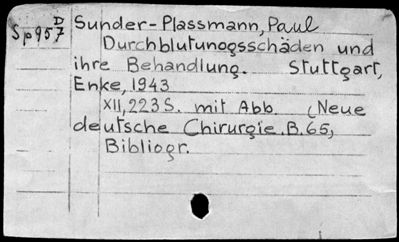 D
Sp957
Sunder-Plassmann, Paul
Durchblutunogsschäden und
ihre Behandlung. Stuttgart,
Enke, 1943
XII, 223 S. mit Abb. (Neue
deutsche Chirurgie. B. 65,
Bibliogr.